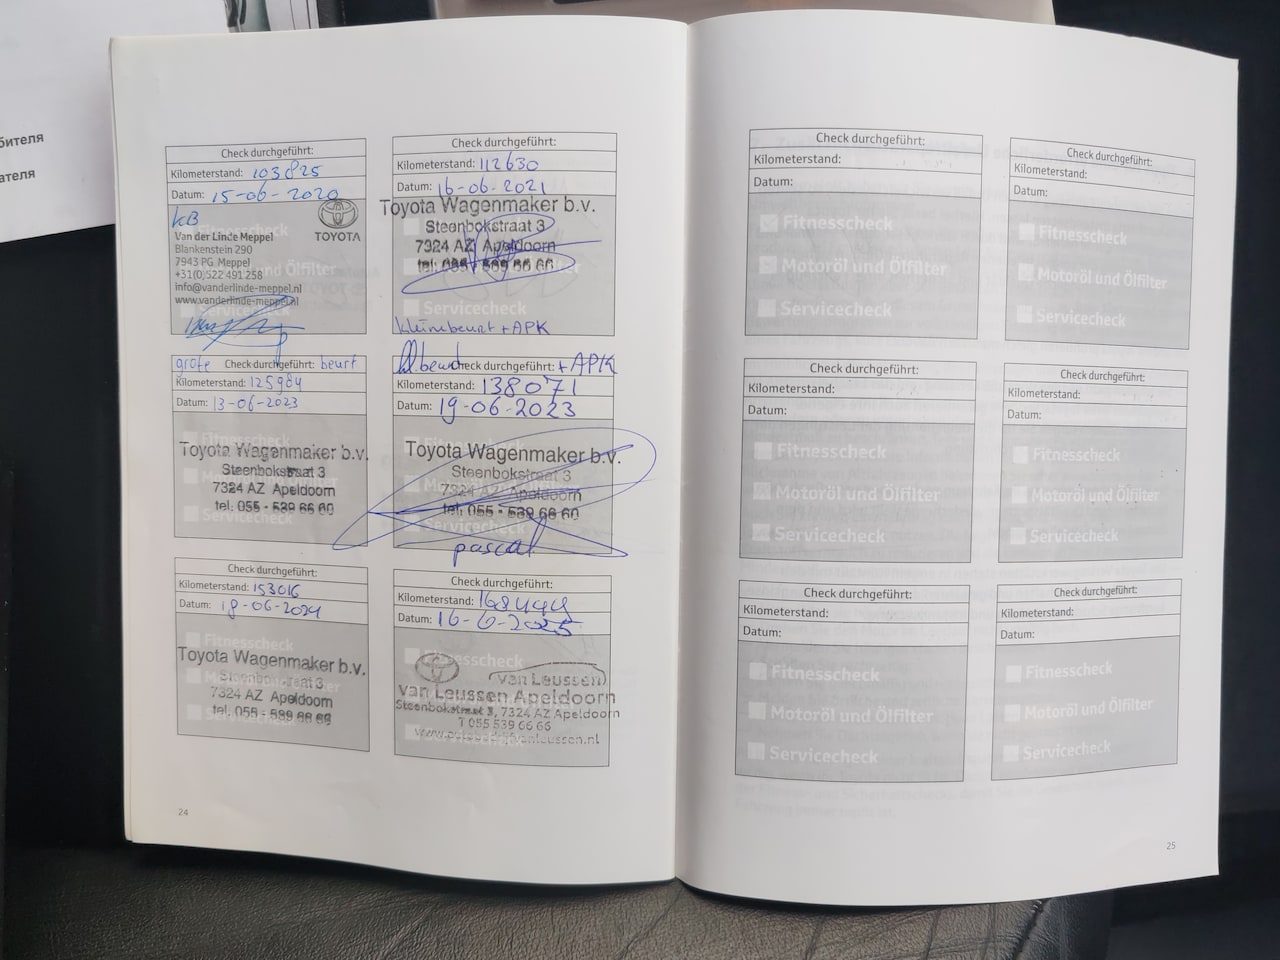 бителя
ателя
Check durchgeführt:
Kilometerstand: 103825
Datum: 15-06-2020
KB
TOYOTA
Van der Linde Meppel
Blankenstein 290
7943 PG Meppel
+31(0)522 491 258
info@vanderlinde-meppel.nl
www.vanderlinde-meppel.nl
Check durchgeführt:
Kilometerstand: 112630
Datum: 16-06-2021
Toyota Wagenmaker b.v.
Steenbokstraat 3
7324 AZ Apeldoorn
tel: 055 - 539 66 60
Servicecheck
kleine beurt + APK
grote Check durchgeführt: beurt
Kilometerstand: 125984
Datum: 13-06-2023
Toyota Wagenmaker b.v.
Steenbokstraat 3
7324 AZ Apeldoorn
tel. 055 - 539 66 60
Servicecheck
Check durchgeführt: + APK
Kilometerstand: 138071
Datum: 19-06-2023
Toyota Wagenmaker b.v.
Steenbokstraat 3
7324 AZ Apeldoorn
tel. 055 - 539 66 60
Servicecheck
pascal
Check durchgeführt:
Kilometerstand: 153016
Datum: 18-06-2024
Fitnesscheck
Toyota Wagenmaker b.v.
Steenbokstraat 3
7324 AZ Apeldoorn
tel. 055 - 539 66 60
Check durchgeführt:
Kilometerstand: 168449
Datum: 16-6-2025
Fitnesscheck
van Leussen
van Leussen Apeldoorn
Steenbokstraat 3, 7324 AZ Apeldoorn
T 055 539 66 66
24
Check durchgeführt:
Kilometerstand:
Datum:
Fitnesscheck
Motoröl und Ölfilter
Servicecheck
Check durchgeführt:
Kilometerstand:
Datum:
Fitnesscheck
Motoröl und Ölfilter
Servicecheck
Check durchgeführt:
Kilometerstand:
Datum:
Fitnesscheck
Motoröl und Ölfilter
Servicecheck
Check durchgeführt:
Kilometerstand:
Datum:
Fitnesscheck
Motoröl und Ölfilter
Servicecheck
Check durchgeführt:
Kilometerstand:
Datum:
Fitnesscheck
Motoröl und Ölfilter
Servicecheck
Check durchgeführt:
Kilometerstand:
Datum:
Fitnesscheck
Motoröl und Ölfilter
Servicecheck
25